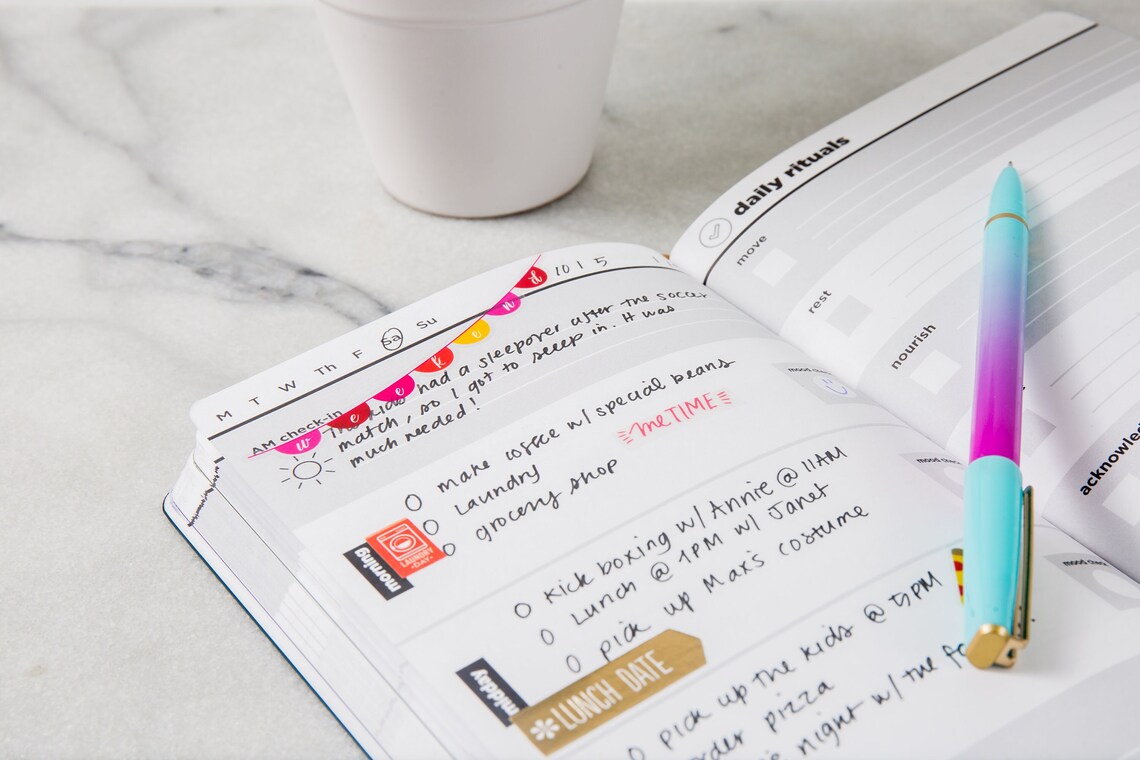 M T W Th F Sa Su
weekend
10 | 5
AM check-in
The kids had a sleepover after the soccer
match, so I got to sleep in. It was
much needed!
morning
LAUNDRY
DAY
make coffee w/ special beans
Laundry
grocery shop
me TIME
mood check
midday
LUNCH DATE
kick boxing w/ Annie @ 11AM
Lunch @ 1PM w/ Janet
pick up Max's costume
mood check
pick up the kids @ 5PM
order pizza
night w/ the
mood check
daily rituals
move
rest
nourish